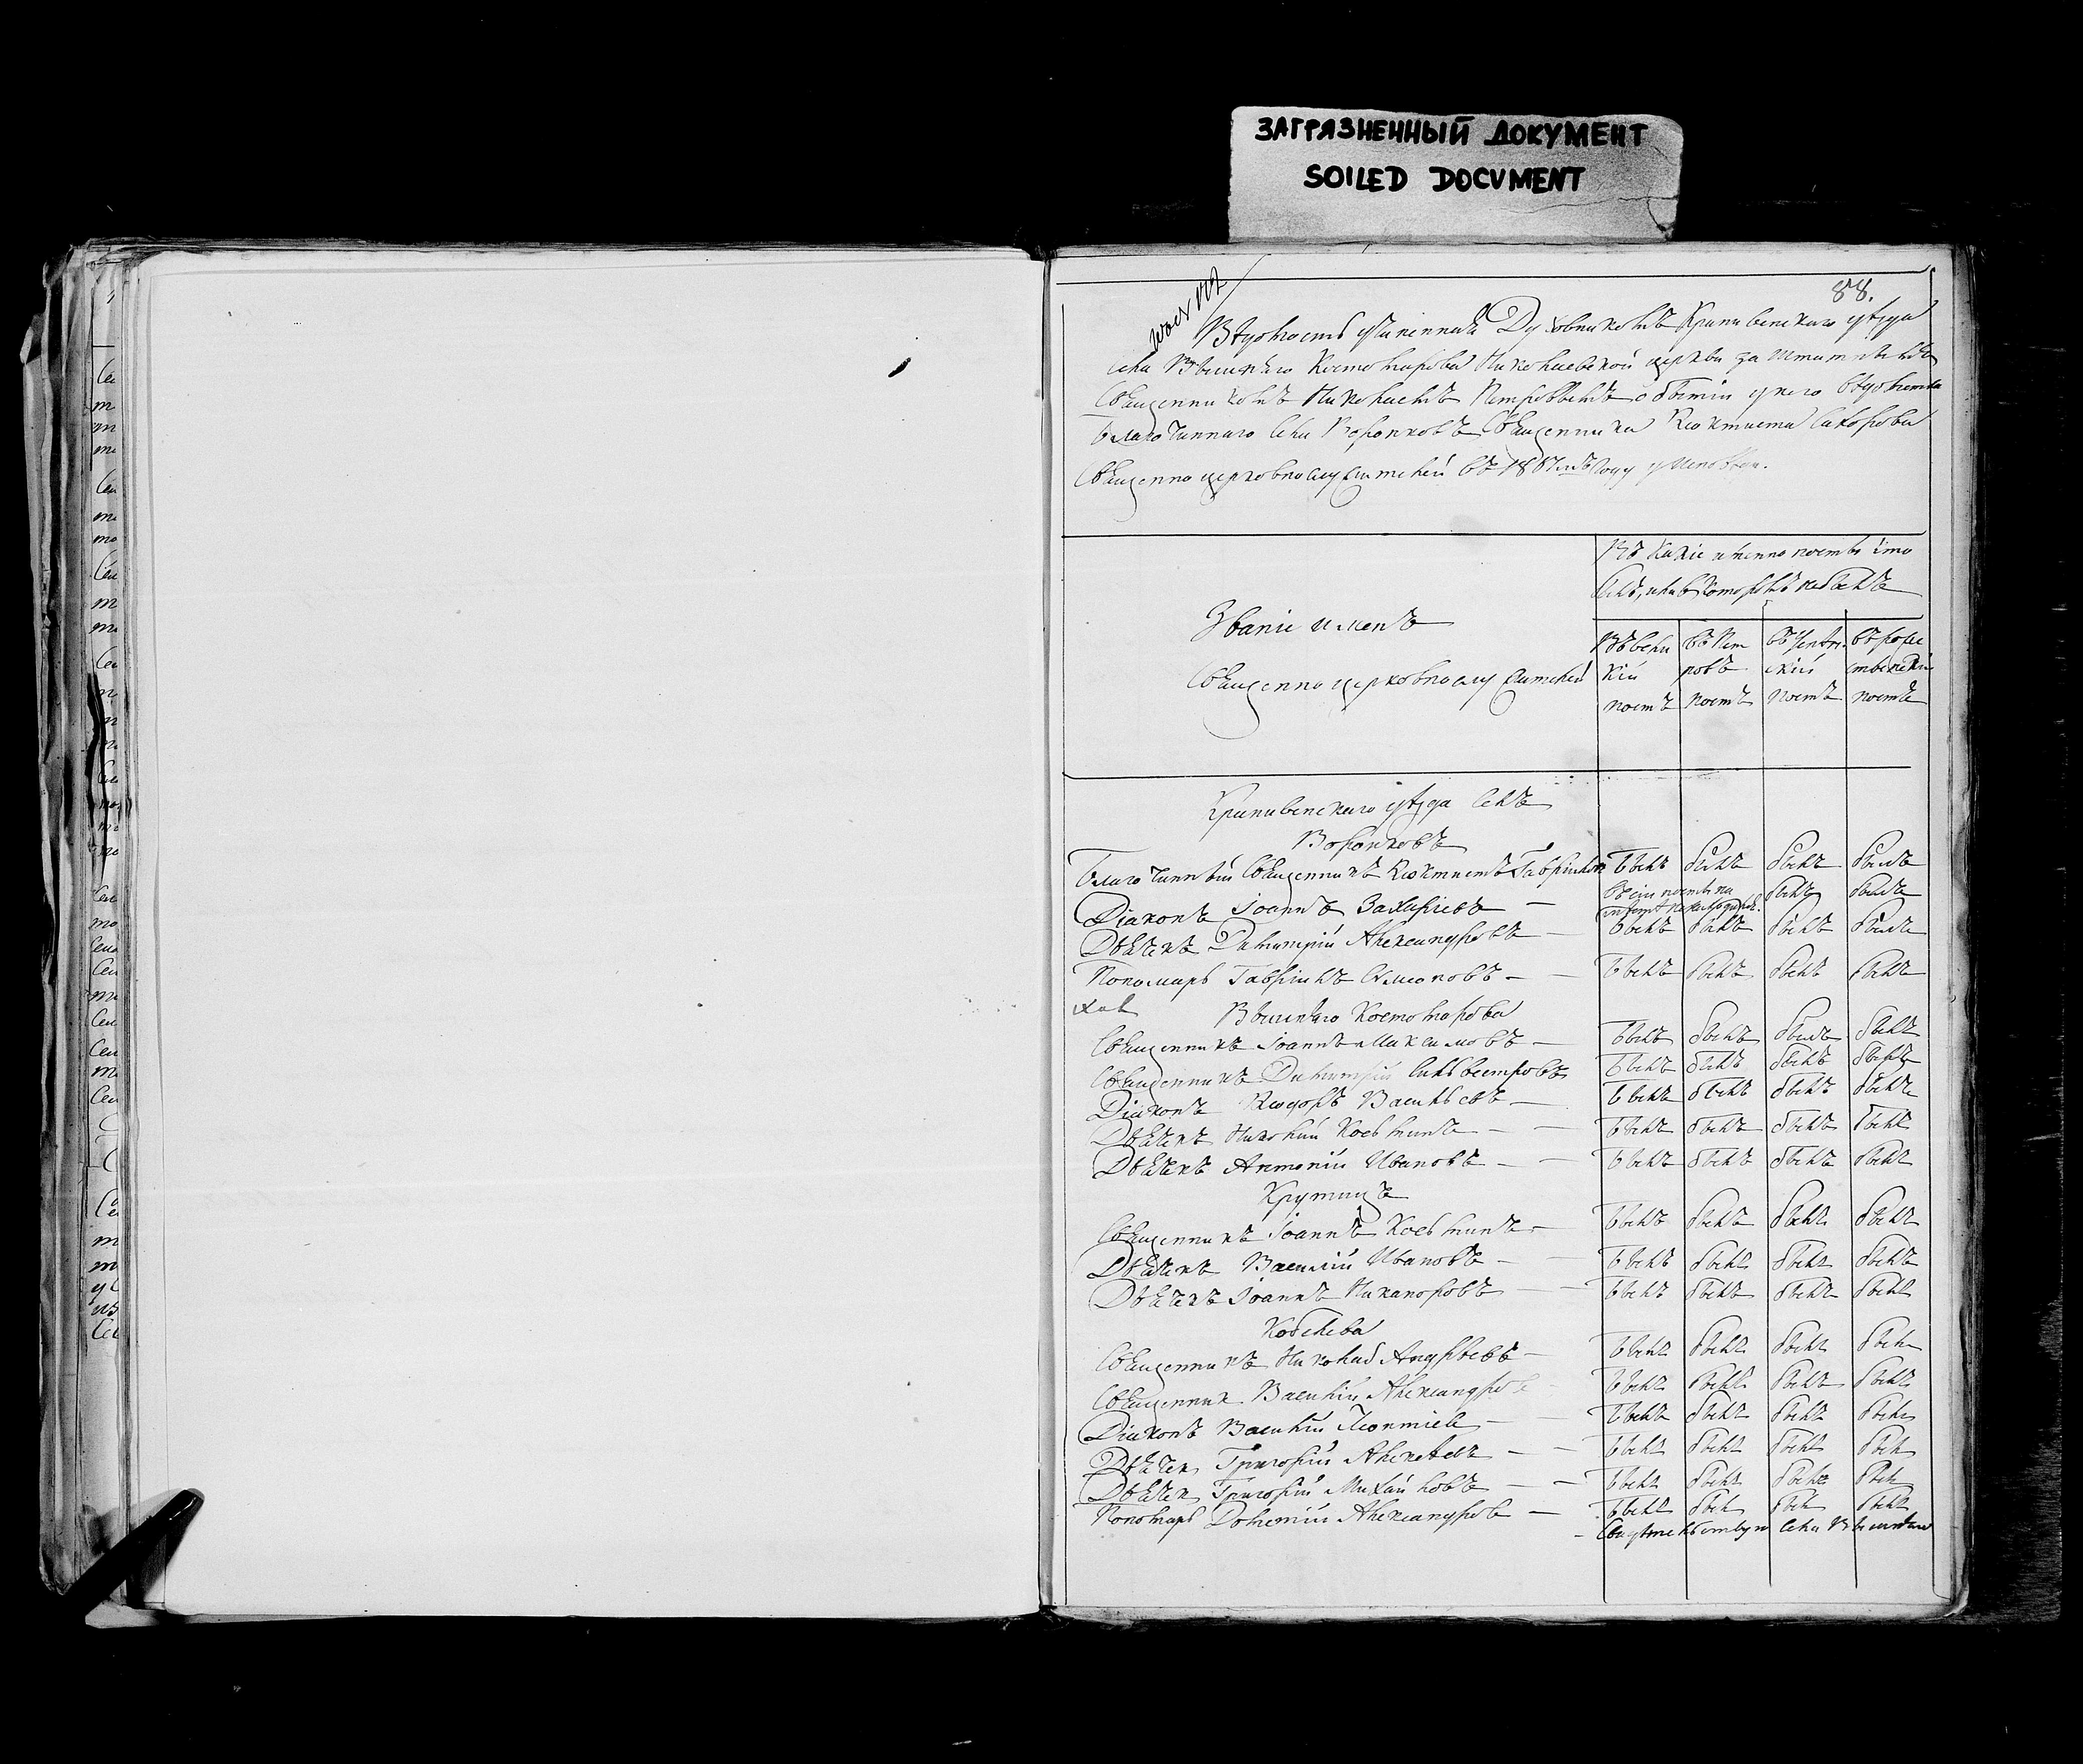 ЗАГРЯЗНЕННЫЙ ДОКУМЕНТ
SOILED DOCUMENT
88.
Вѣдомость учиненная Духовникомъ Крапивенскаго уѣзда
села Вышняго Костомарова Николаевской церкви заштатнымъ
Священникомъ Николаемъ Петровымъ о бытіи у него вѣдомства
благочиннаго села Воронковъ Священника Ѳеоктиста
Священно церковнослужителей въ году у исповѣди.
Въ какіе именно посты кто
былъ, или въ которыхъ небылъ
Званіе именъ
Священно церковнослужителей
Въ вели
кій
постъ
въ Пет
ровъ
постъ
въ Успен
скій
постъ
въ рожде
ственскій
постъ
Крапивенскаго уѣзда селъ
Воронковъ
Благочинный Священникъ Ѳеоктистъ Гавриловъ былъ былъ былъ былъ
Діаконъ Іоаннъ Захаріевъ — въ сіи посты на мѣстѣ не находился. былъ былъ
Дьячекъ Димитрій Александровъ — былъ былъ былъ былъ
Пономарь Гавріилъ Симоновъ — былъ былъ былъ былъ
Вышняго Костомарова
Священникъ Іоаннъ Максимовъ — былъ былъ былъ былъ
Священникъ Димитрій Сильвестровъ былъ былъ былъ былъ
Діаконъ Ѳеодоръ Васильевъ — былъ былъ былъ былъ
Дьячекъ Николай Косминъ — былъ былъ былъ былъ
Дьячекъ Антоній Ивановъ — былъ былъ былъ былъ
Крутицъ
Священникъ Іоаннъ Косминъ — былъ былъ былъ былъ
Дьячекъ Василій Ивановъ — былъ былъ былъ былъ
Дьячекъ Іоаннъ Никаноровъ — былъ былъ былъ былъ
Кобелева
Священникъ Николай Андреевъ — былъ былъ былъ былъ
Священник Василій Александров былъ былъ былъ былъ
Діаконъ Василій Леонтіев — былъ былъ былъ былъ
Дьячек Григорій Алексѣевъ — былъ былъ былъ был
Дьячек Григорій Михайловъ — былъ былъ былъ был
Пономарь Александров — былъ был был былъ
Свидѣтельствую села Вышняго